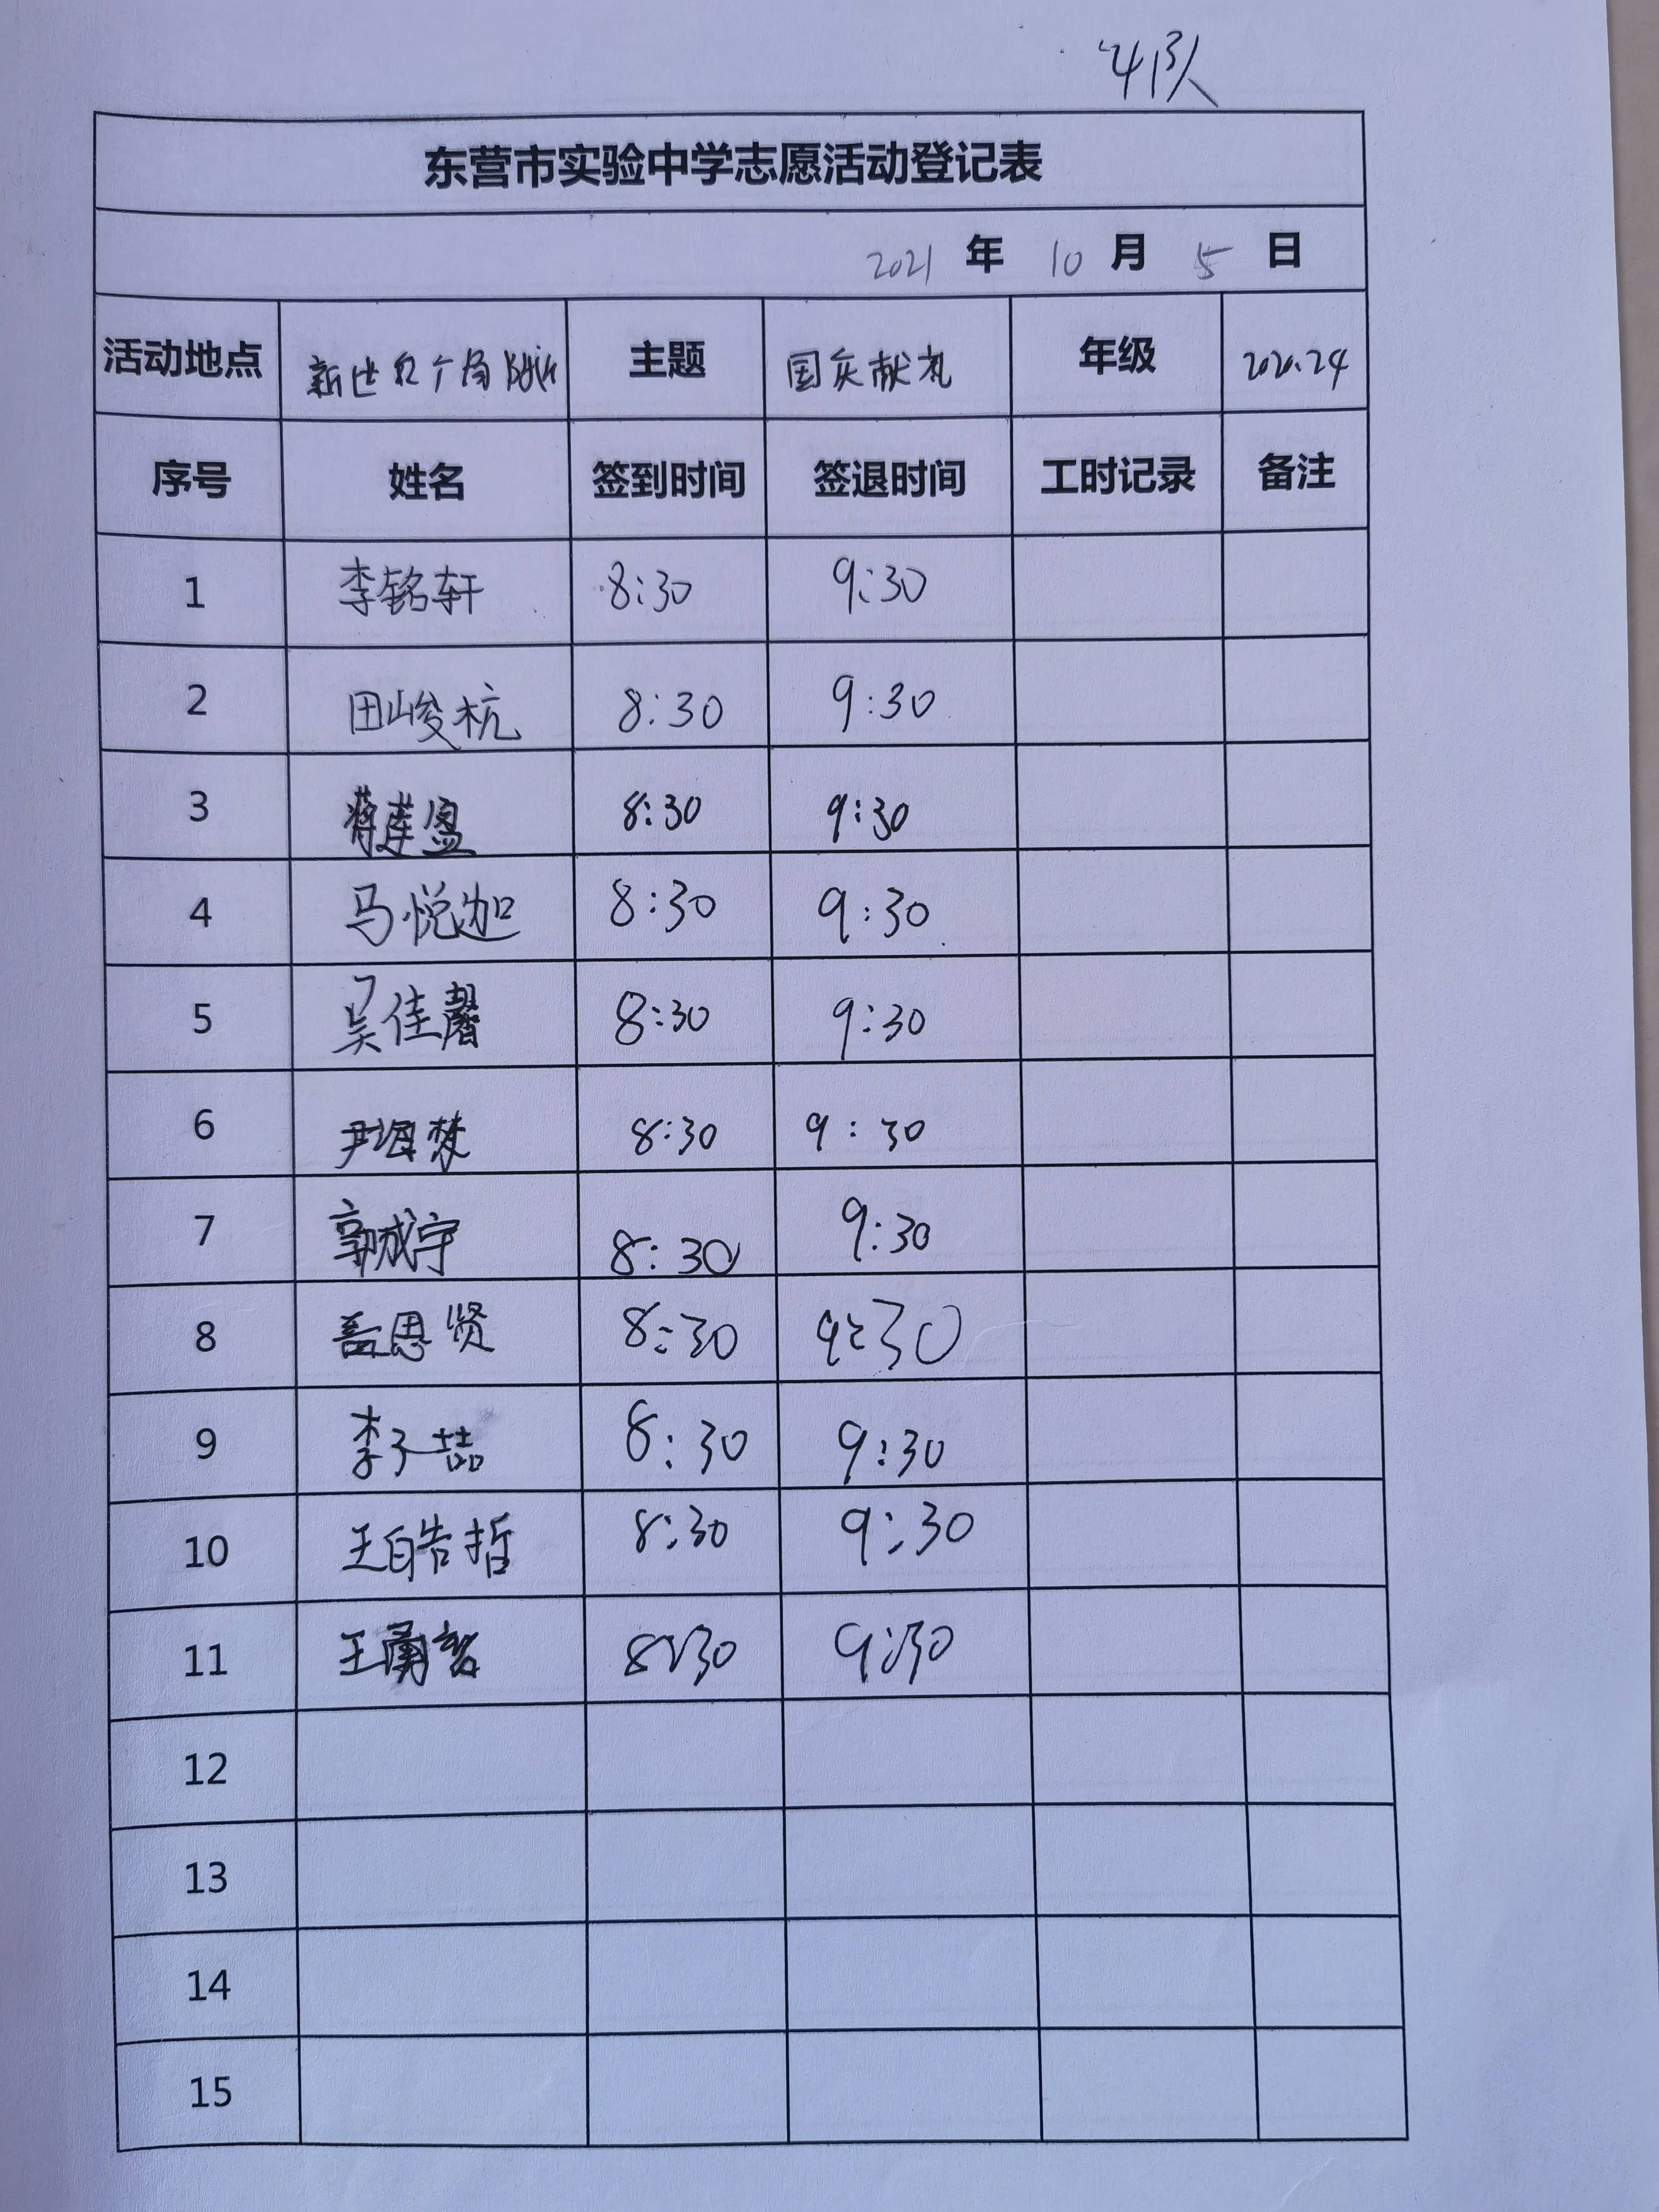 4队
东营市实验中学志愿活动登记表
2021 年 10 月 5 日
活动地点 新世纪广场附近 主题 国庆献礼 年级 2020.24
序号 姓名 签到时间 签退时间 工时记录 备注
1 李铭轩 8:30 9:30
2 田峻杭 8:30 9:30
3 8:30 9:30
4 马悦迦 8:30 9:30
5 吴佳馨 8:30 9:30
6 8:30 9:30
7 郭成宇 8:30 9:30
8 思贤 8:30 9:30
9 李子喆 8:30 9:30
10 王皓哲 8:30 9:30
11 王 8:30 9:30
12
13
14
15